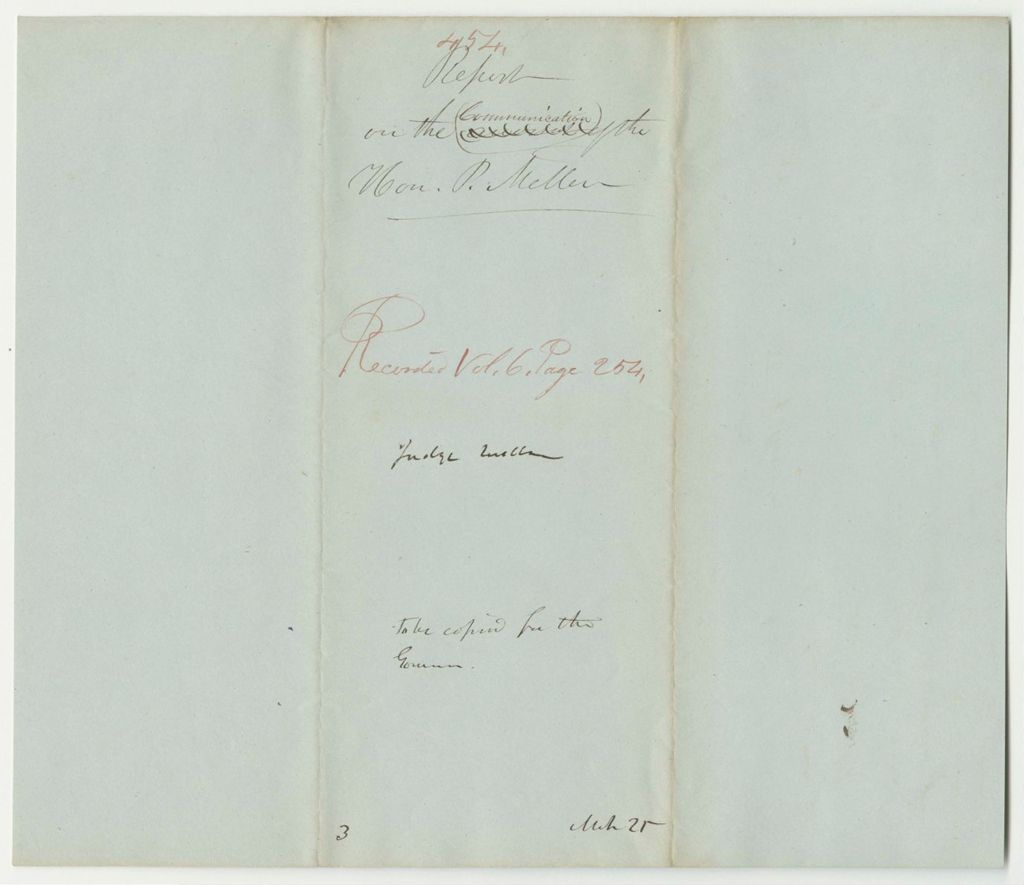 454,
Report
on the Communication of the
Hon. P. Mellen
Recorded Vol. 6. Page 254,
Judge Mellen
To be copied for the
Governor.
3 Mch 25